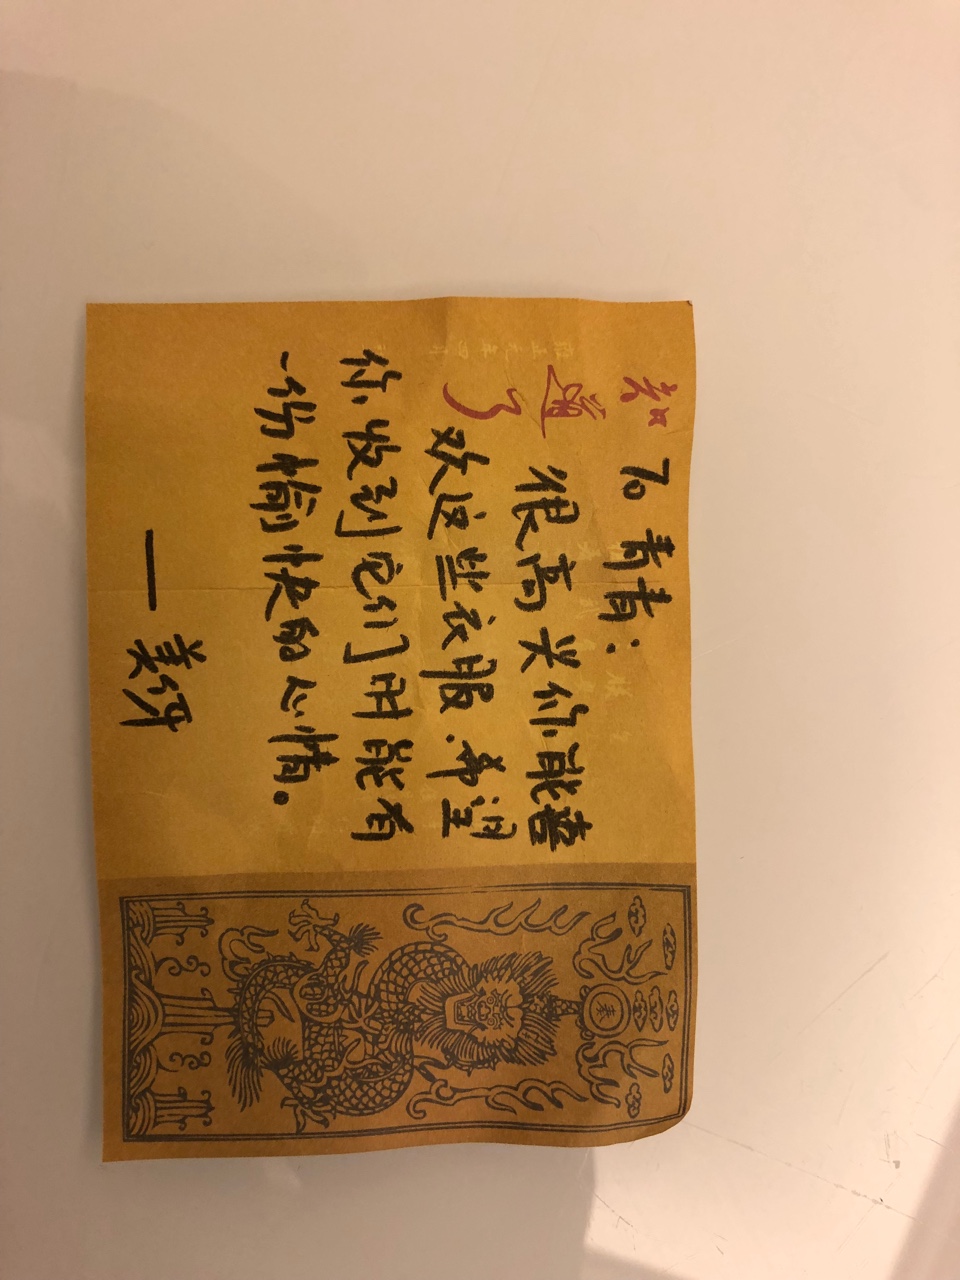 知道了
To 青青:
很高兴你能喜
欢这些衣服.希望
你收到它们时能有
一份愉快的心情。
— 美伢
奏